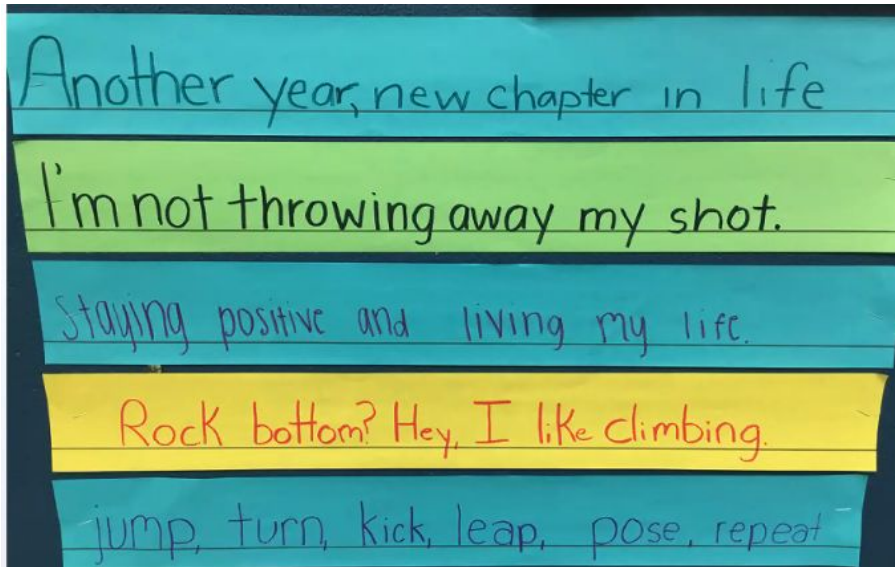 Another year, new chapter in life
I'm not throwing away my shot.
staying positive and living my life.
Rock bottom? Hey, I like climbing.
jump, turn, kick, leap, pose, repeat